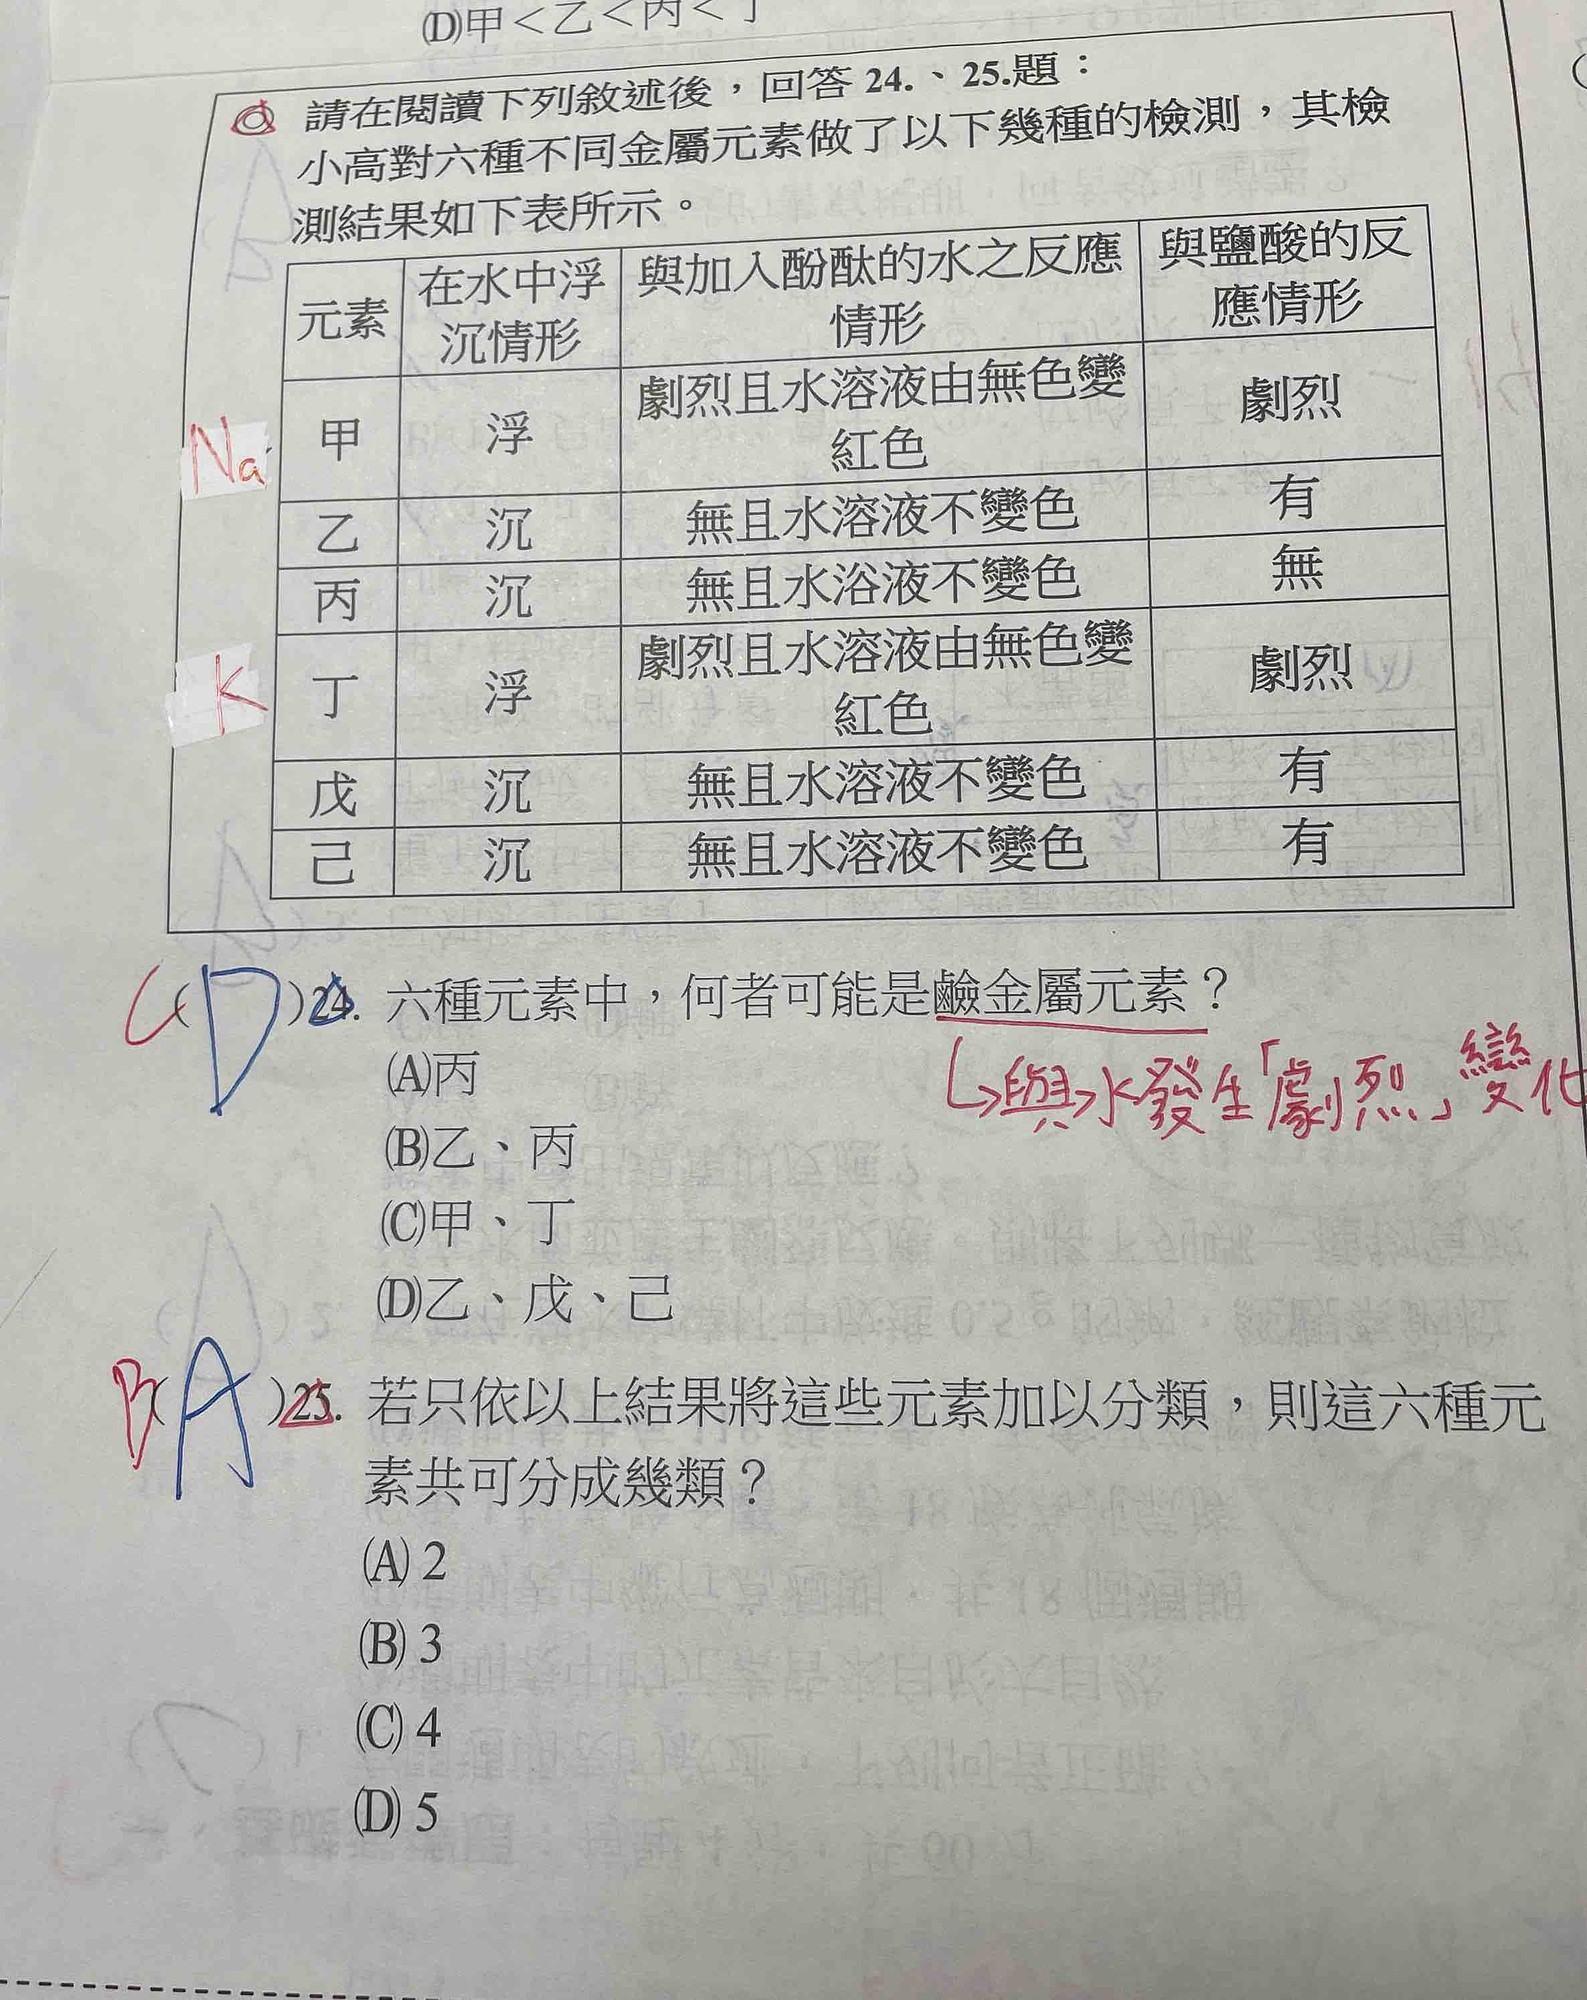 (D)甲＜乙＜丙＜丁
請在閱讀下列敘述後，回答 24.、25.題：
小高對六種不同金屬元素做了以下幾種的檢測，其檢
測結果如下表所示。
元素 在水中浮沉情形 與加入酚酞的水之反應情形 與鹽酸的反應情形
Na 甲 浮 劇烈且水溶液由無色變紅色 劇烈
乙 沉 無且水溶液不變色 有
丙 沉 無且水浴液不變色 無
K 丁 浮 劇烈且水溶液由無色變紅色 劇烈
戊 沉 無且水溶液不變色 有
己 沉 無且水溶液不變色 有
C( D )24. 六種元素中，何者可能是鹼金屬元素？
(A)丙
↳與水發生「劇烈」變化
(B)乙、丙
(C)甲、丁
(D)乙、戊、己
B( A )25. 若只依以上結果將這些元素加以分類，則這六種元
素共可分成幾類？
(A) 2
(B) 3
(C) 4
(D) 5